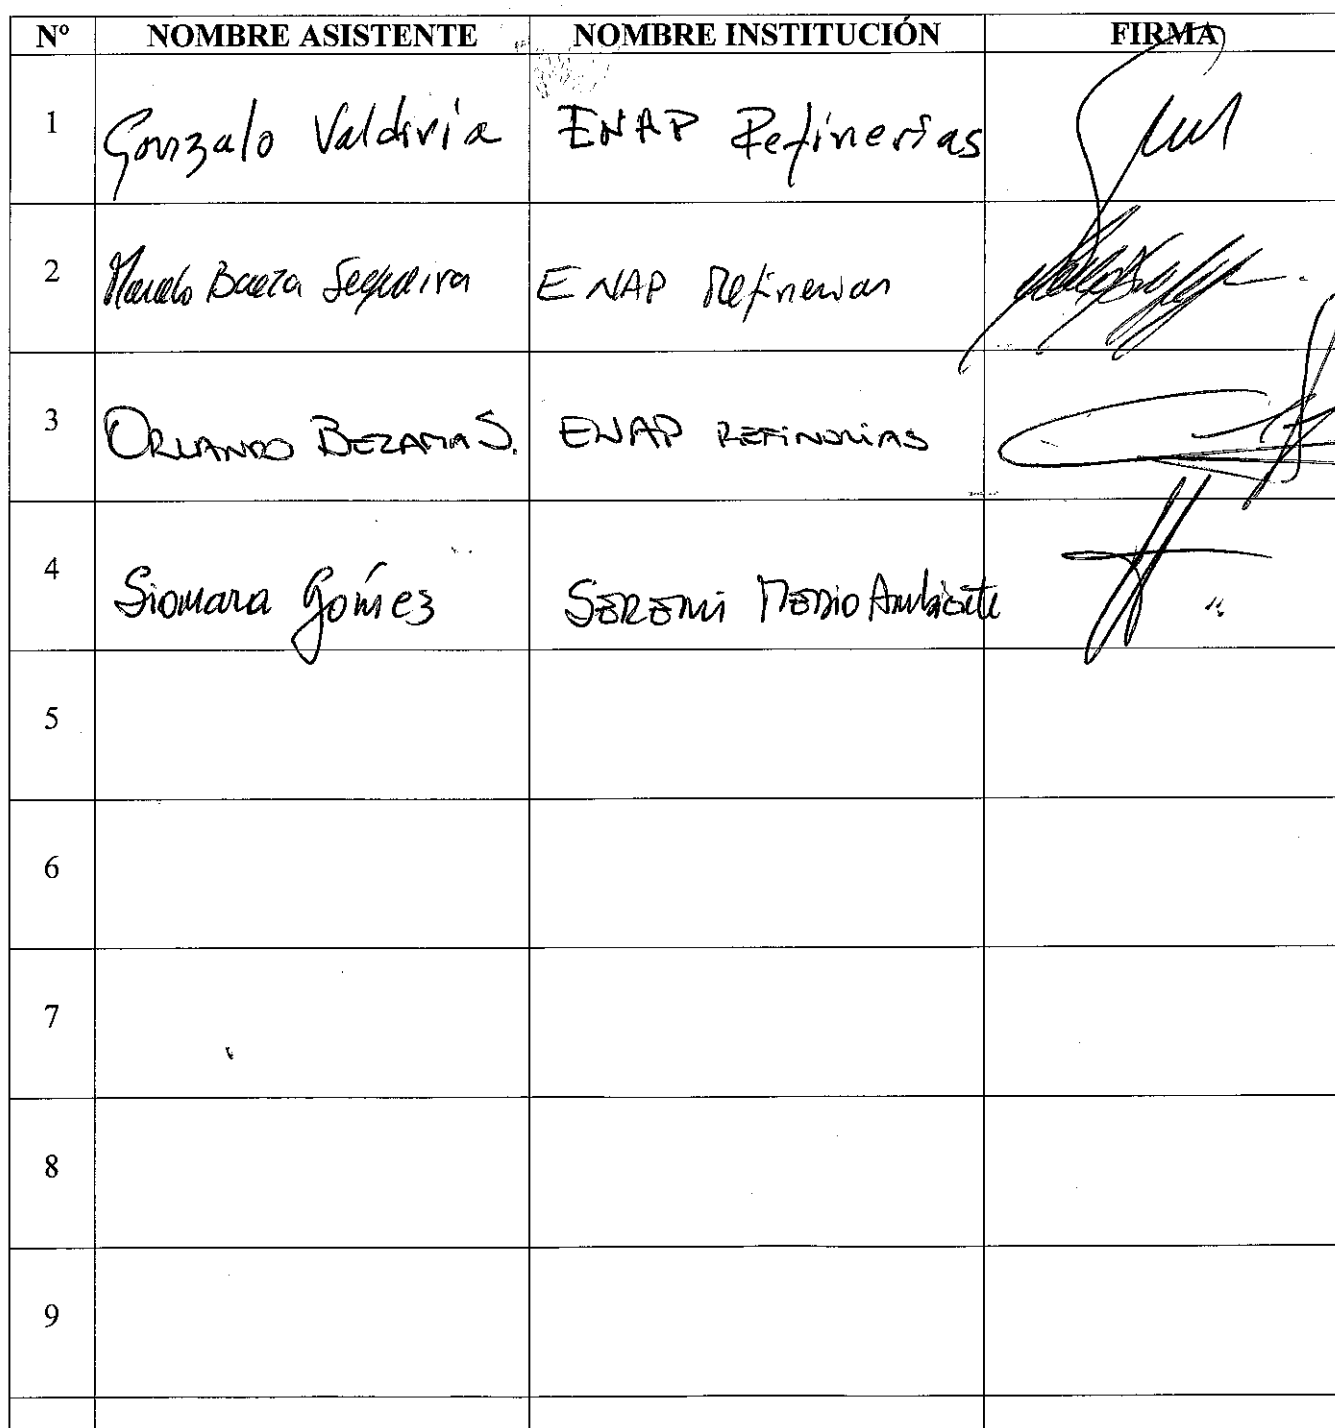 Nº NOMBRE ASISTENTE NOMBRE INSTITUCIÓN FIRMA
1 Gonzalo Valdivia ENAP Refinerías
2 Marcelo Baeza Sequeira ENAP Refinerias
3 ORLANDO BEZAMA S. ENAP REFINERIAS
4 Siomara Gómez SEREMI MEDIO Ambiente
5
6
7
8
9